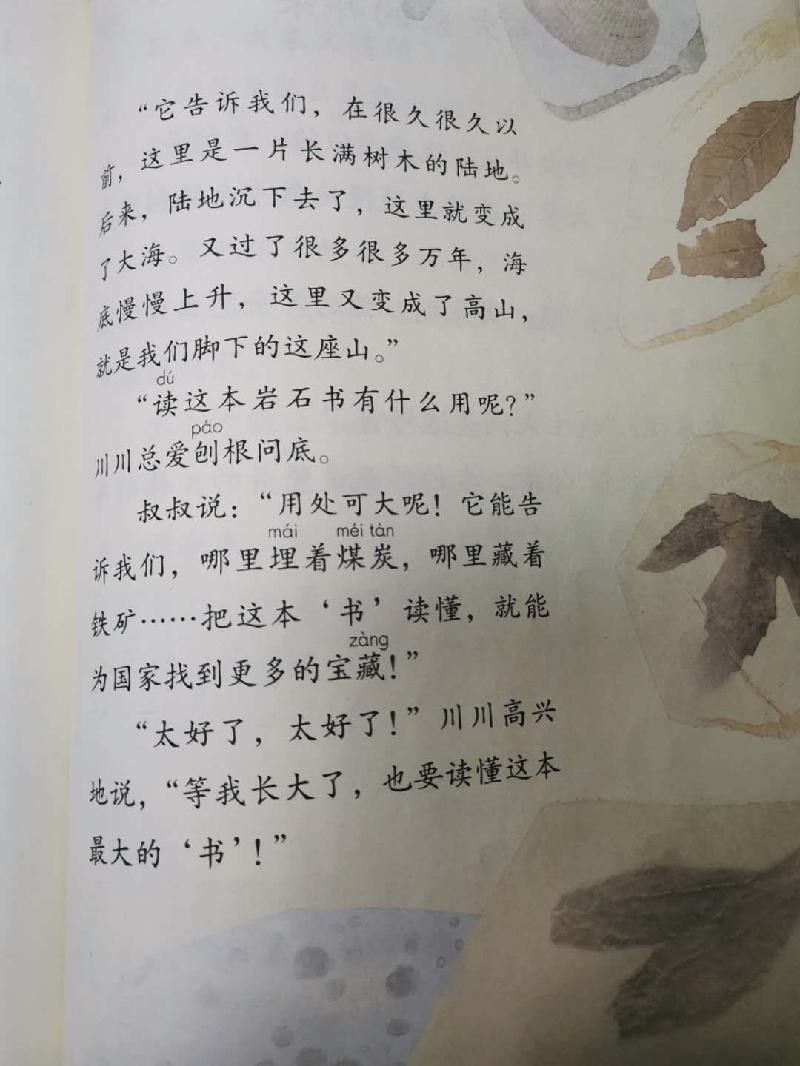 “它告诉我们，在很久很久以
前，这里是一片长满树木的陆地。
后来，陆地沉下去了，这里就变成
了大海。又过了很多很多万年，海
底慢慢上升，这里又变成了高山，
就是我们脚下的这座山。”
dú
“读这本岩石书有什么用呢？”
páo
川川总爱刨根问底。
叔叔说：“用处可大呢！它能告
mái méi tàn
诉我们，哪里埋着煤炭，哪里藏着
铁矿……把这本‘书’读懂，就能
zàng
为国家找到更多的宝藏！”
“太好了，太好了！”川川高兴
地说，“等我长大了，也要读懂这本
最大的‘书’！”